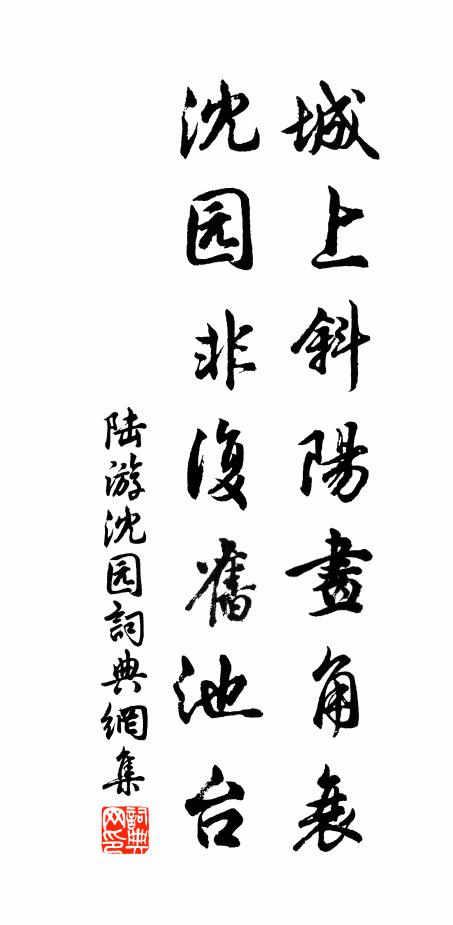 城上斜陽畫角哀
沈园非復舊池台
陆游沈园詞典網集
詞典网印